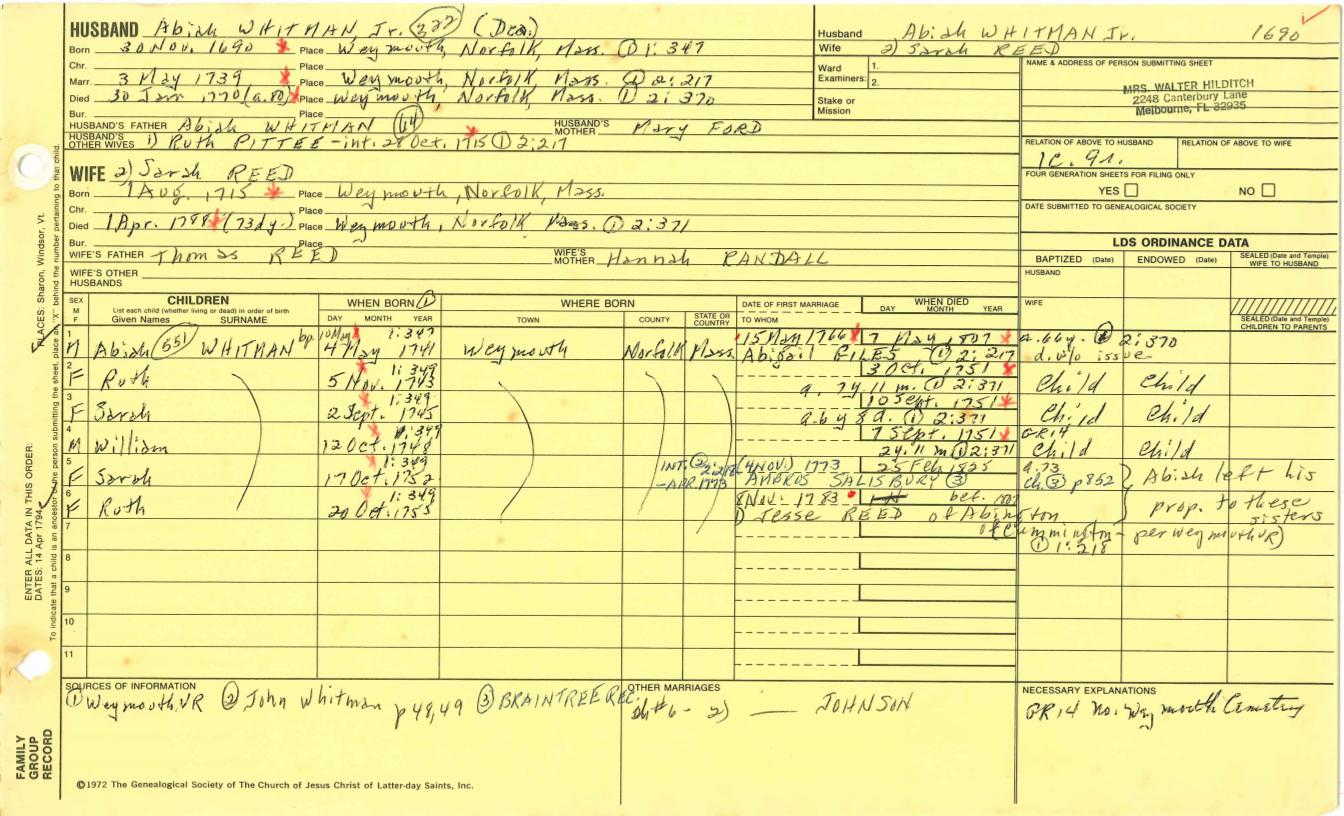 HUSBAND Abiah WHITMAN Jr. 222 (Dea.)
Born 30 Nov. 1690 Place Weymouth, Norfolk, Mass. ① 1:347
Chr. Place
Marr. 3 May 1739 Place Weymouth, Norfolk Mass. ① 2:217
Died 30 Jan 1770 (a.80) Place Weymouth, Norfolk, Mass. ① 2:370
Bur. Place
HUSBAND'S FATHER Abiah WHITMAN 64 HUSBAND'S MOTHER Mary FORD
HUSBAND'S OTHER WIVES 1) Ruth PITTEE - int. 28 Oct. 1715 ① 2:217
Husband Abiah WHITMAN Jr. 1690
Wife 2) Sarah REED
Ward Examiners: 1.
2.
Stake or Mission
NAME & ADDRESS OF PERSON SUBMITTING SHEET
MRS. WALTER HILDITCH
2248 Canterbury Lane
Melbourne, FL 32935
RELATION OF ABOVE TO HUSBAND RELATION OF ABOVE TO WIFE
1c. 9r.
FOUR GENERATION SHEETS FOR FILING ONLY
YES NO
DATE SUBMITTED TO GENEALOGICAL SOCIETY
WIFE 2) Sarah REED
Born 1 Aug. 1715 Place Weymouth, Norfolk, Mass.
Chr. Place
Died 1 Apr. (73dy.) Place Weymouth, Norfolk Mass. ① 2:371
Bur. Place
WIFE'S FATHER Thomas REED WIFE'S MOTHER Hannah RANDALL
WIFE'S OTHER HUSBANDS
LDS ORDINANCE DATA
BAPTIZED (Date) ENDOWED (Date) SEALED (Date and Temple) WIFE TO HUSBAND
HUSBAND
WIFE
SEALED (Date and Temple) CHILDREN TO PARENTS
SEX M F CHILDREN WHEN BORN ① WHERE BORN DATE OF FIRST MARRIAGE WHEN DIED
List each child (whether living or dead) in order of birth
Given Names SURNAME DAY MONTH YEAR TOWN COUNTY STATE OR COUNTRY TO WHOM DAY MONTH YEAR
1 bp 10 May 1:347 15 May 1766 7 May 1807 a.66y. 2:370
M Abiah 551 WHITMAN 4 May 1741 Weymouth Norfolk Mass Abigail FILES ① 2:217 d. w/o issue
2 1:349 3 Oct. 1751
F Ruth 5 Nov. 1743 a. 7y 11 m. ① 2:371 Child Child
3 1:349 10 Sept. 1751
F Sarah 2 Sept. 1745 a.6y 8d. ① 2:371 Child Child
4 1:349 7 Sept. 1751 GR14
M William 12 Oct. 1748 2y. 11 m ① 2:371 Child Child
5 1:349 INT. ② (4 NOV.) 1773 25 Feb 1825 a.73
F Sarah 17 Oct. 1752 -APR. 1773 AMBROS SALISBURY ③ ch. ③ p852 Abiah left his
6 1:349 8 Nov. 1783 bef. prop. to these
F Ruth 20 Oct. 1755 1) Jesse REED of Abington sisters
7 of Cummington - per weymouth VR)
① 1:218
8
9
10
11
SOURCES OF INFORMATION
① Weymouth VR ② John Whitman p 48,49 ③ BRAINTREE REC.
OTHER MARRIAGES
ch #6 - 2) JOHNSON
NECESSARY EXPLANATIONS
GR14 No. Weymouth Cemetery
©1972 The Genealogical Society of The Church of Jesus Christ of Latter-day Saints, Inc.
FAMILY GROUP RECORD
ENTER ALL DATA IN THIS ORDER:
DATES: 14 Apr 1794
PLACES: Sharon, Windsor, Vt.
To indicate that a child is an ancestor of the person submitting the sheet, place an "X" behind the number pertaining to that child.